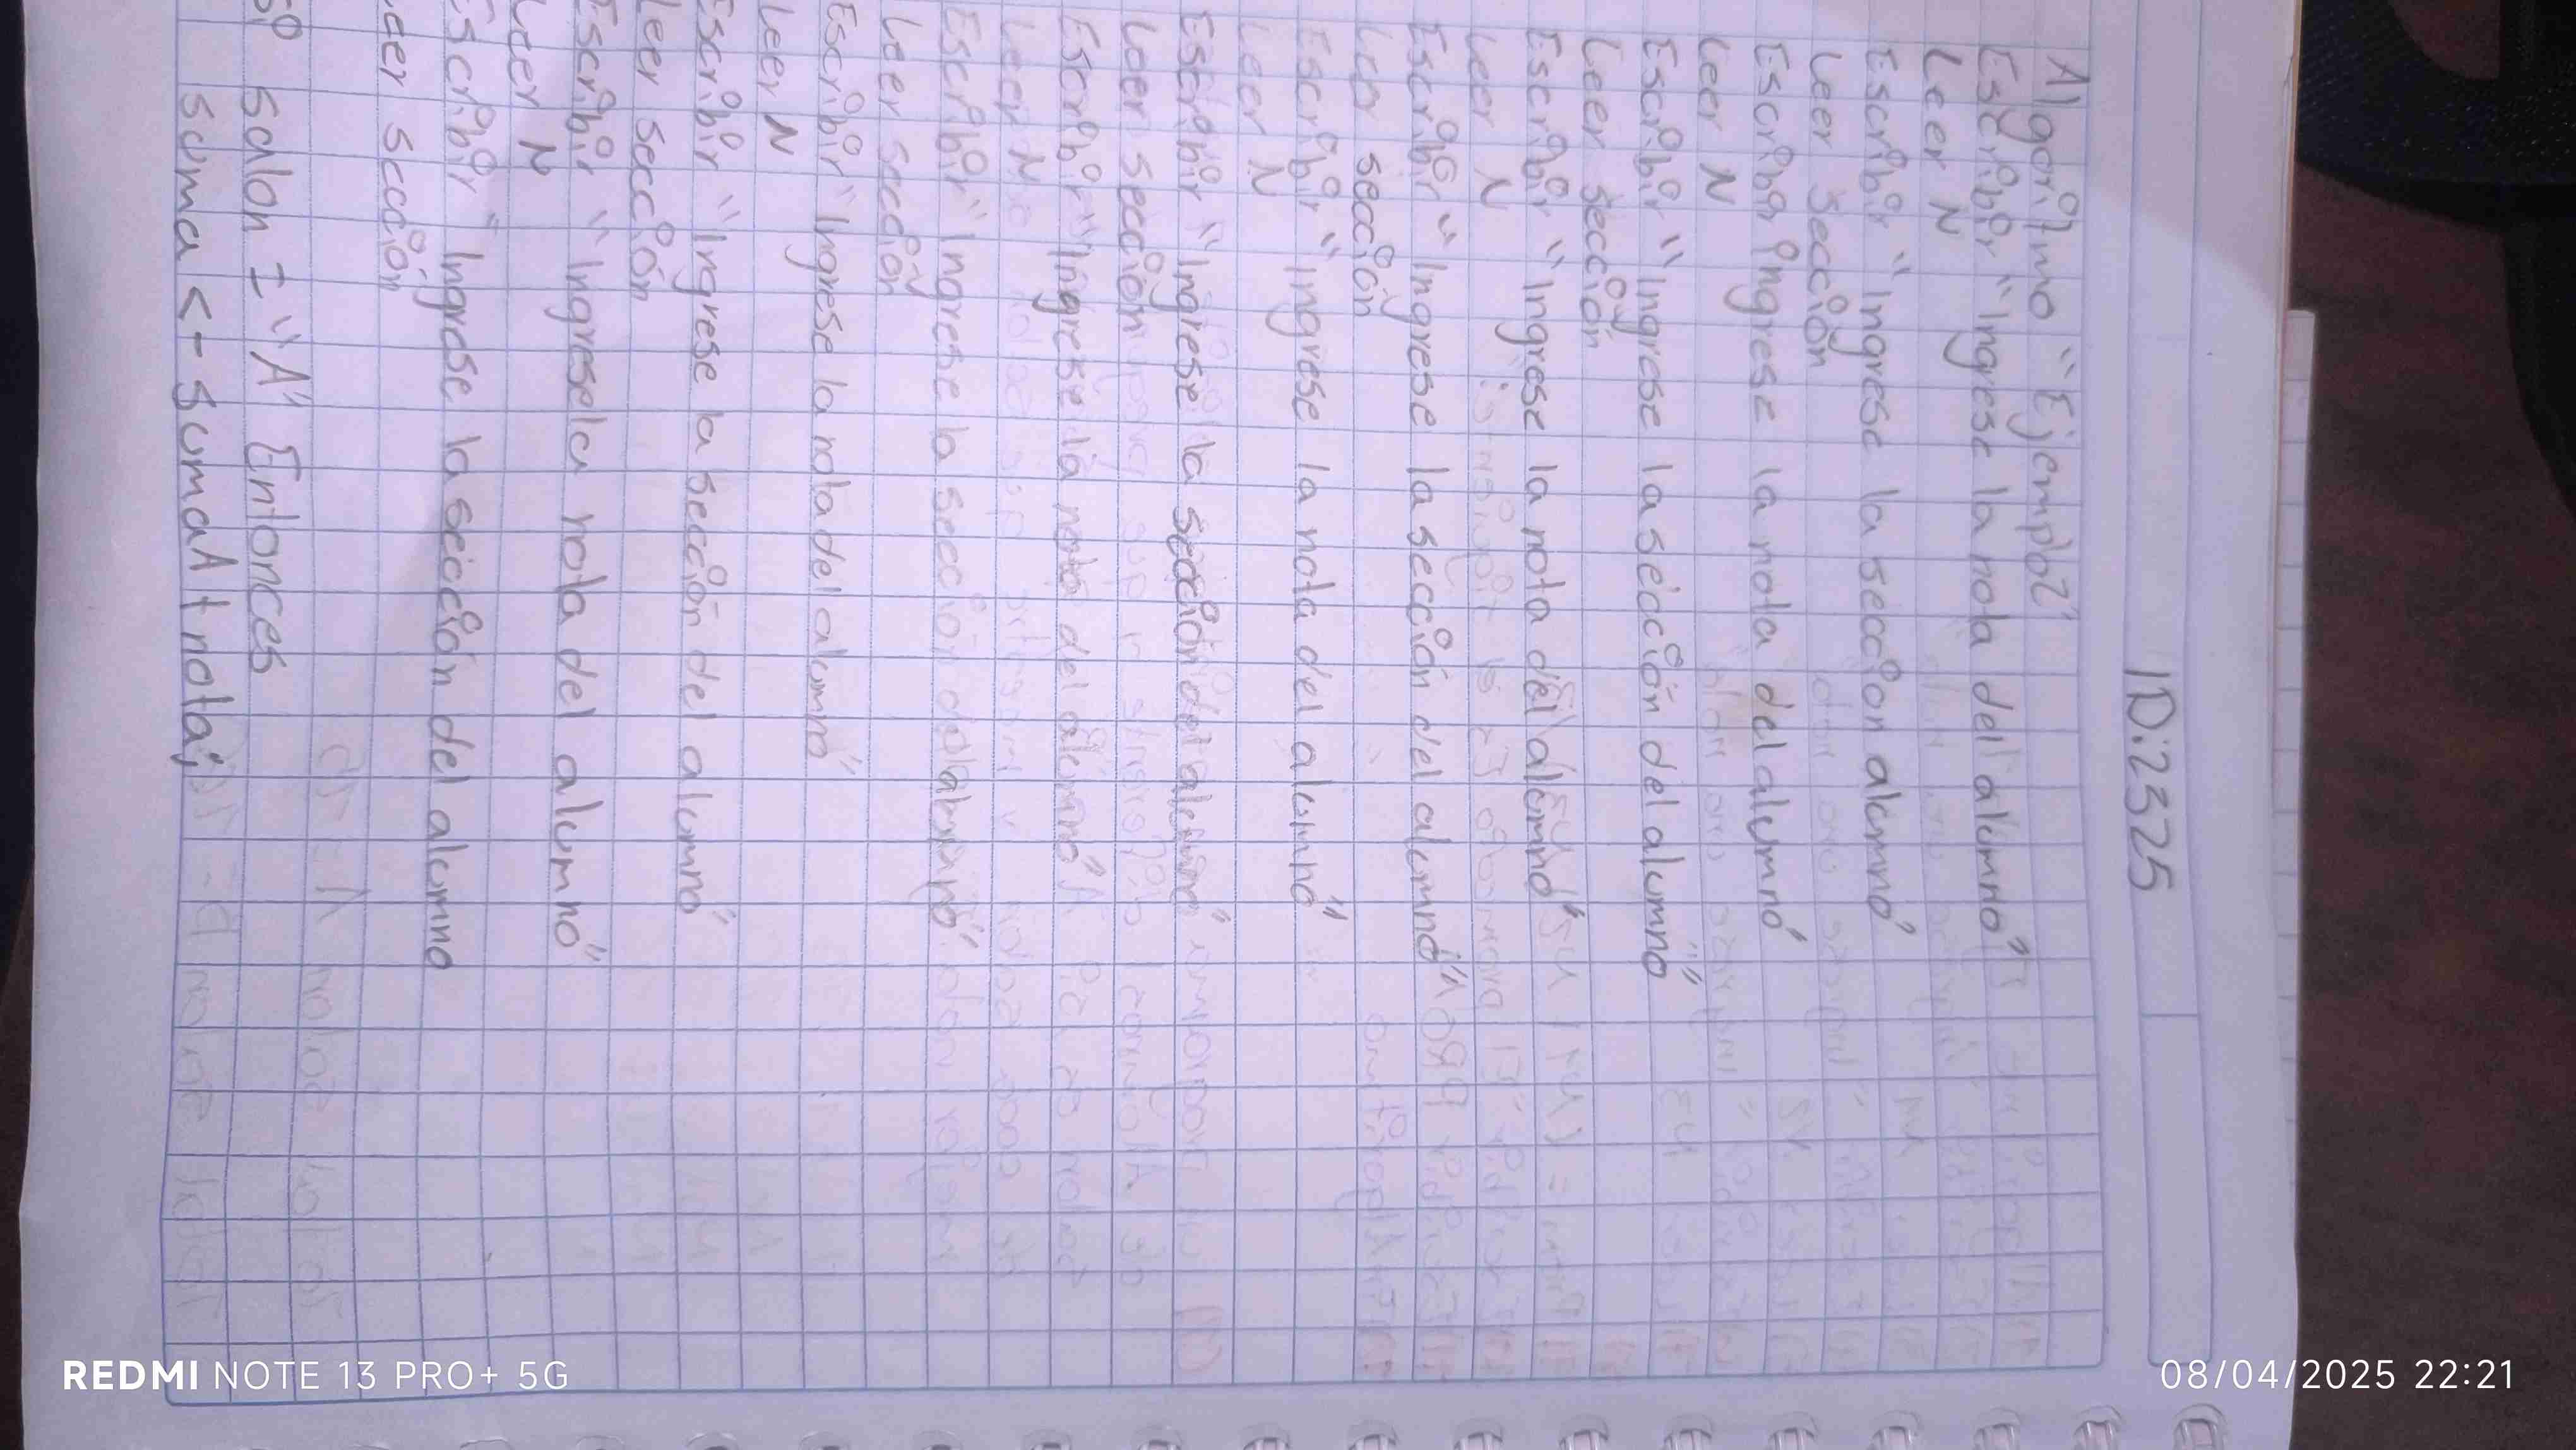 ID:2325
Algoritmo "Ejemplo2"
Escribir "Ingrese la nota del alumno"
Leer N
Escribir "Ingrese la seccion alumno"
Leer sección
Escribir ingrese la nota del alumno"
Leer N
Escribir "Ingrese la sección del alumno"
Leer sección
Escribir "Ingrese la nota del alumno"
Leer N
Escribir "Ingrese la sección del alumno"
Leer sección
Escribir "Ingrese la nota del alumno"
Leer N
Escribir "Ingrese la sección del alumno"
Leer sección
Escribir "Ingrese la nota del alumno"
Leer N
Escribir "Ingrese la sección del alumno"
Leer sección
Escribir "Ingrese la nota del alumno"
Leer N
Escribir "Ingrese la sección del alumno"
Leer sección
Escribir "Ingresela nota del alumno"
Leer N
Escribir "Ingrese la sección del alumno
Leer sección
Si salon = "A" Entonces
suma <- sumaA + nota;
REDMI NOTE 13 PRO+ 5G
08/04/2025 22:21